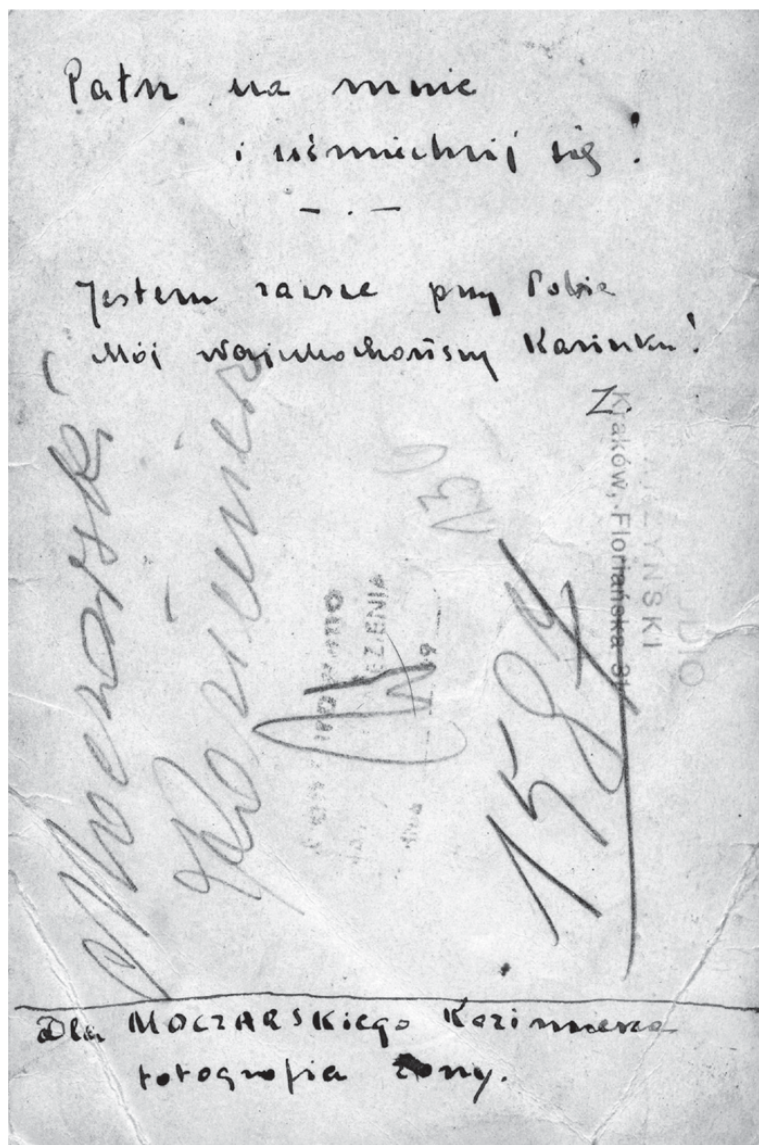 Patrz na mnie
i uśmiechnij się!
Jestem zawsze przy Tobie
Mój najukochańszy Kazieńku!
Z.
Moczarski
Kazimierz
130
158
Kraków, Floriańska 3
Dla MOCZARSKiego Kazimierza
fotografia żony.